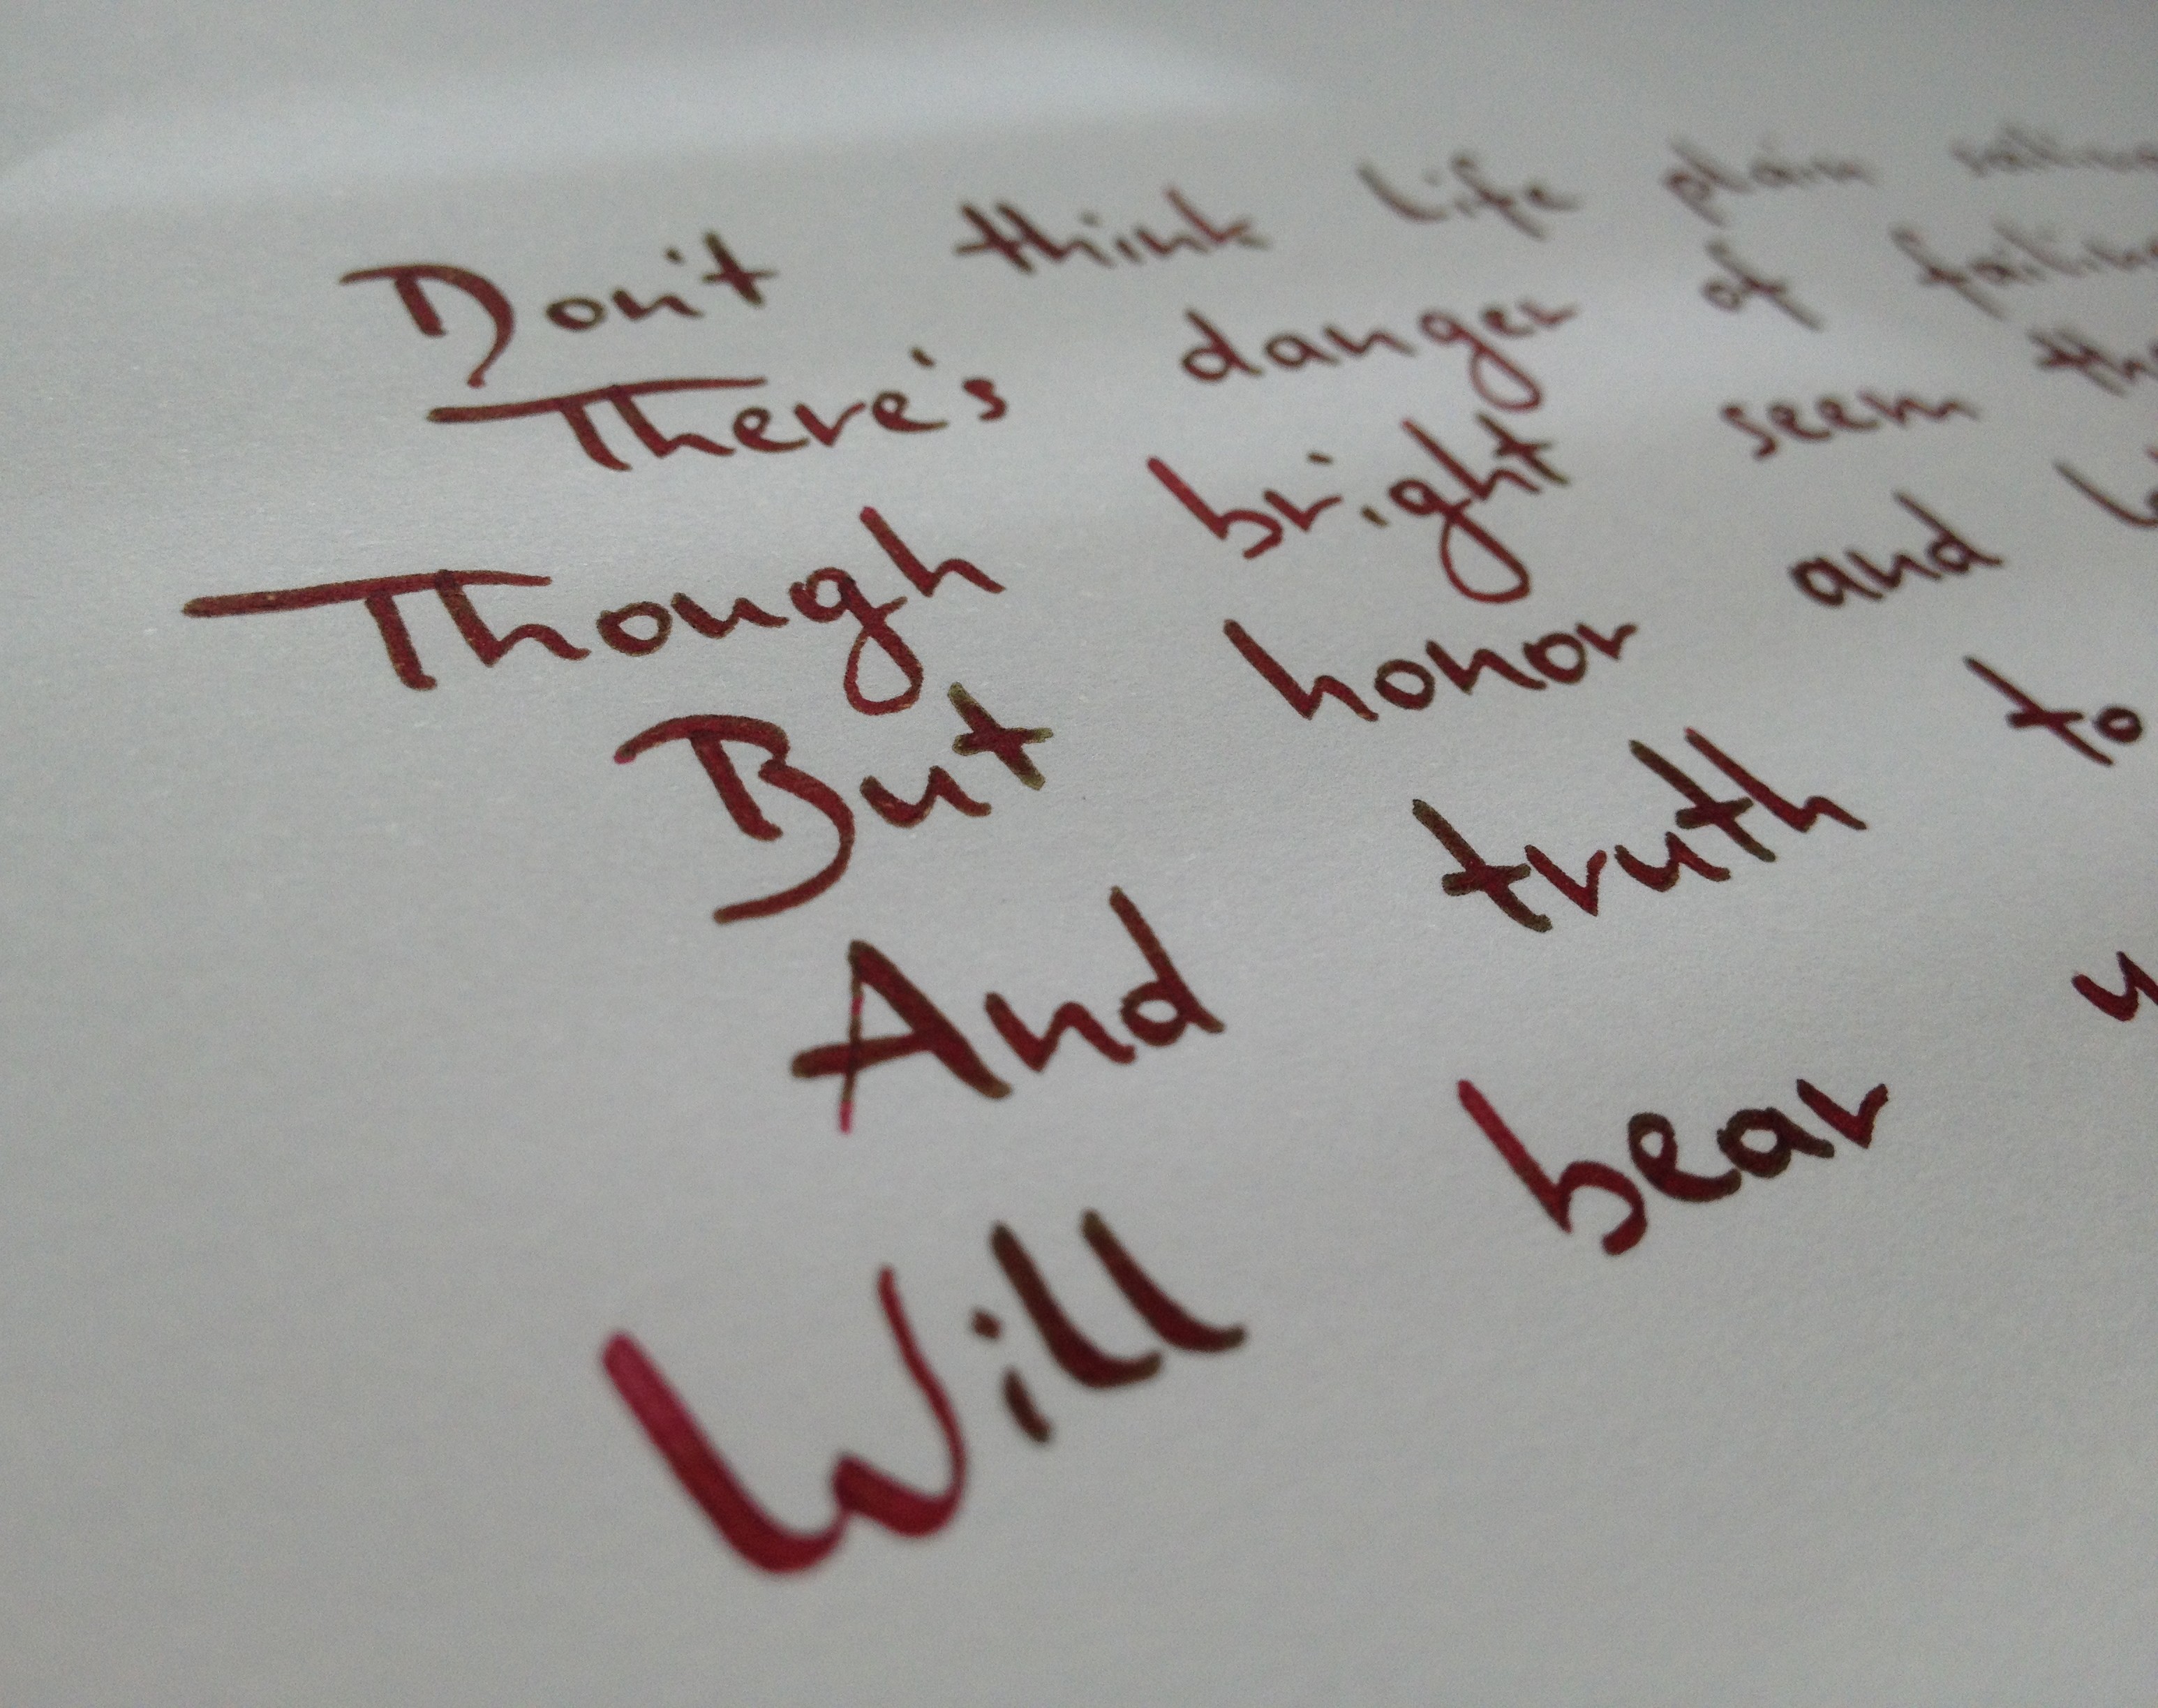 Don't think life plain sailing
There's danger of failing
Though bright seem the
But honor and
And truth to
Will bear